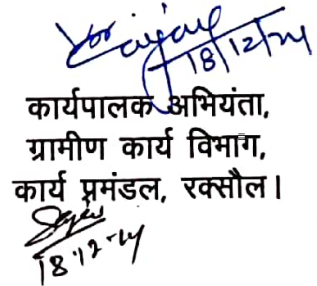 18/12/24
कार्यपालक अभियंता,
ग्रामीण कार्य विभाग,
कार्य प्रमंडल, रक्सौल।
18.12.24